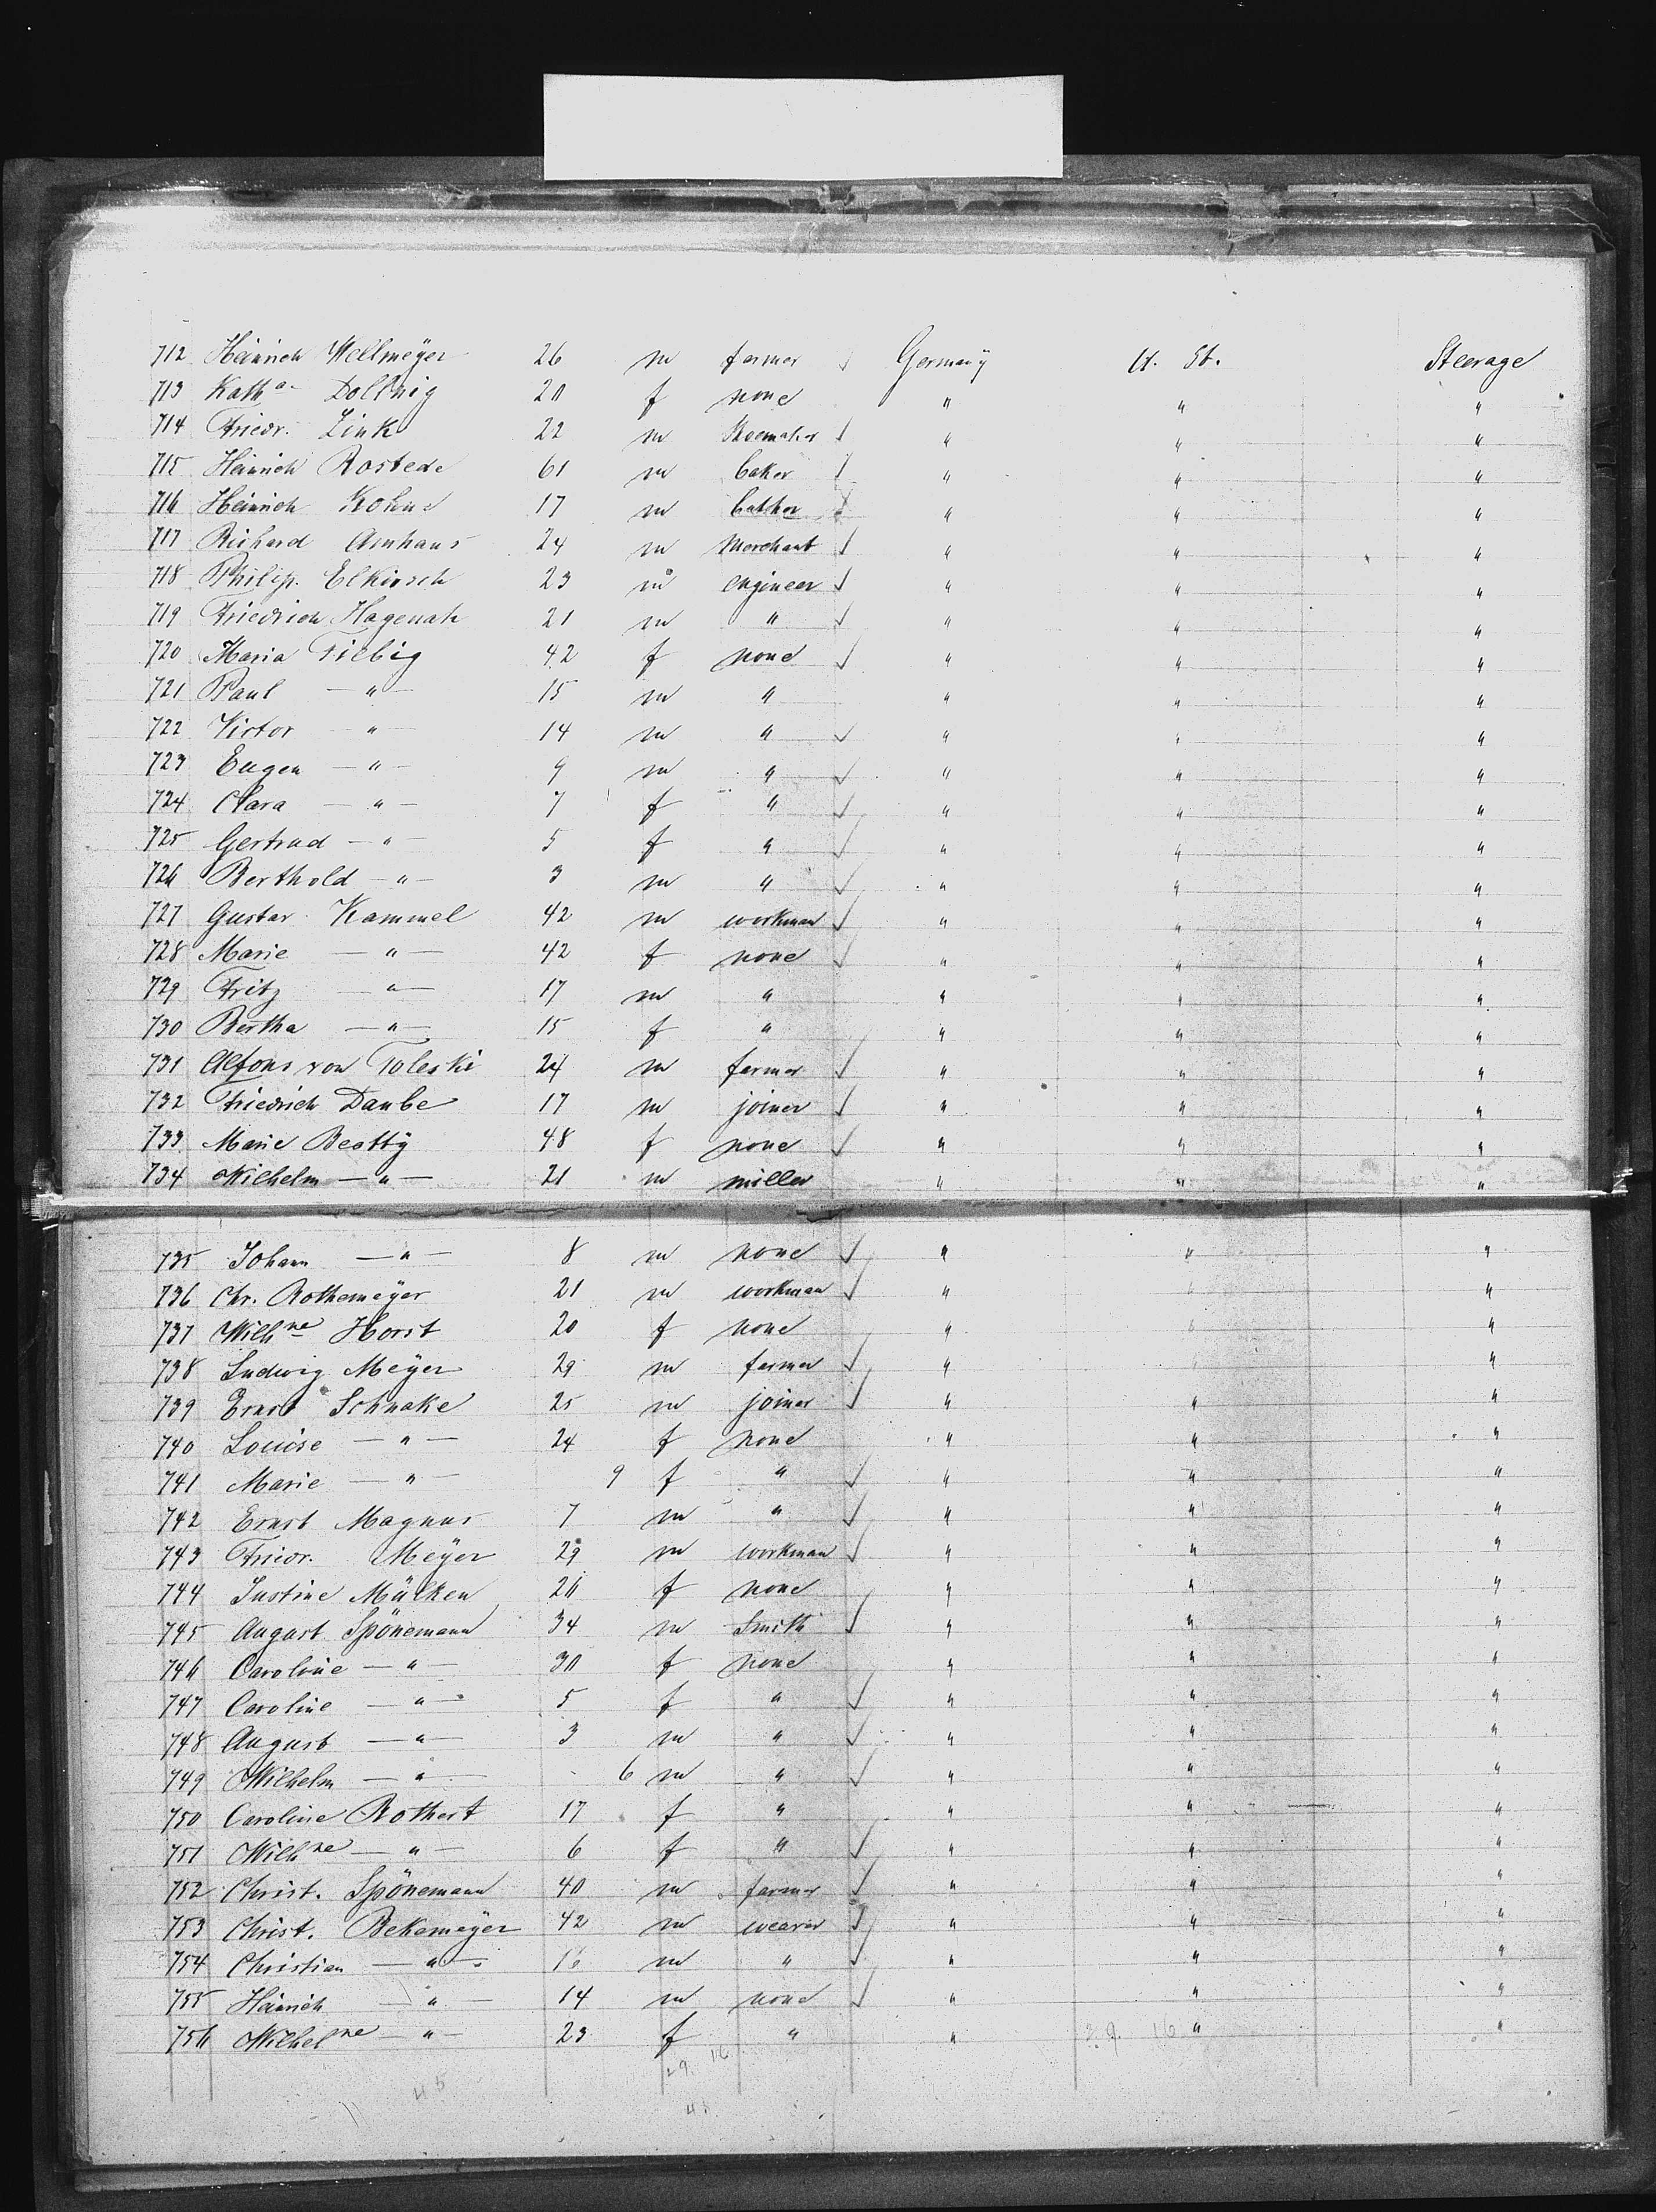 712 Heinrich Wellmeÿer 26 m farmer ✓ Germanÿ U. St. Steerage
713 Kath.a Dollnig 20 f none " " "
714 Friedr. Link 22 m Shoemaker ✓ " " "
715 Heinrich Rostede 61 m baker ✓ " " "
716 Heinrich Kohne 17 m ✓ " " "
717 Richard Amhaus 24 m Merchant ✓ " " "
718 Philip. Elkirsch 23 m engineer ✓ " " "
719 Friedrich Hagenah 21 m " ✓ " " "
720 Maria Fiebig 42 f none ✓ " " "
721 Paul — " — 15 m " " " "
722 Victor " — 14 m " ✓ " " "
723 Eugen — " — 9 m " ✓ " " "
724 Clara — " — 7 f " ✓ " " "
725 Gertrud — " — 5 f " ✓ " " "
726 Berthold — " — 3 m " ✓ " " "
727 Gustav Kammel 42 m workman ✓ " " "
728 Marie — " — 42 f none ✓ " " "
729 Fritz — " — 17 m " " " "
730 Bertha — " — 15 f " " " "
731 Alfons von Toleski 24 m farmer ✓ " " "
732 Friedrich Daube 17 m joiner ✓ " " "
733 Marie Beattÿ 48 f none ✓ " " "
734 Wilhelm — " — 21 m miller " " "
735 Johann — " — 8 m none ✓ " " "
736 Chr. Rothemeÿer 21 m workman ✓ " " "
737 Wilhne Horst 20 f none " " "
738 Ludwig Meÿer 29 m farmer ✓ " "
739 Ernst Schnake 25 m joiner ✓ " " "
740 Louise — " — 24 f none " " "
741 Marie — " — 9 f " ✓ " " "
742 Ernst Magnus 7 m " ✓ " " "
743 Friedr. Meÿer 29 m workman ✓ " " "
744 Justine Mülken 20 f none " " "
745 August Spönemann 34 m Smith ✓ " " "
746 Caroline — " — 30 f none " " "
747 Caroline — " — 5 f " ✓ " " "
748 August — " — 3 m " ✓ " " "
749 Wilhelm — " — 6 m " ✓ " " "
750 Caroline Rothert 17 f " " " "
751 Wilhne — " — 6 f " ✓ " " "
752 Christ. Spönemann 40 m farmer ✓ " " "
753 Christ. Bekemeÿer 42 m weaver ✓ " " "
754 Christian — " — 16 m " ✓ " " "
755 Heinrich — " — 14 m none ✓ " " "
756 Wilhelne — " — 23 f " " 29. 16 " "
29. 16
45